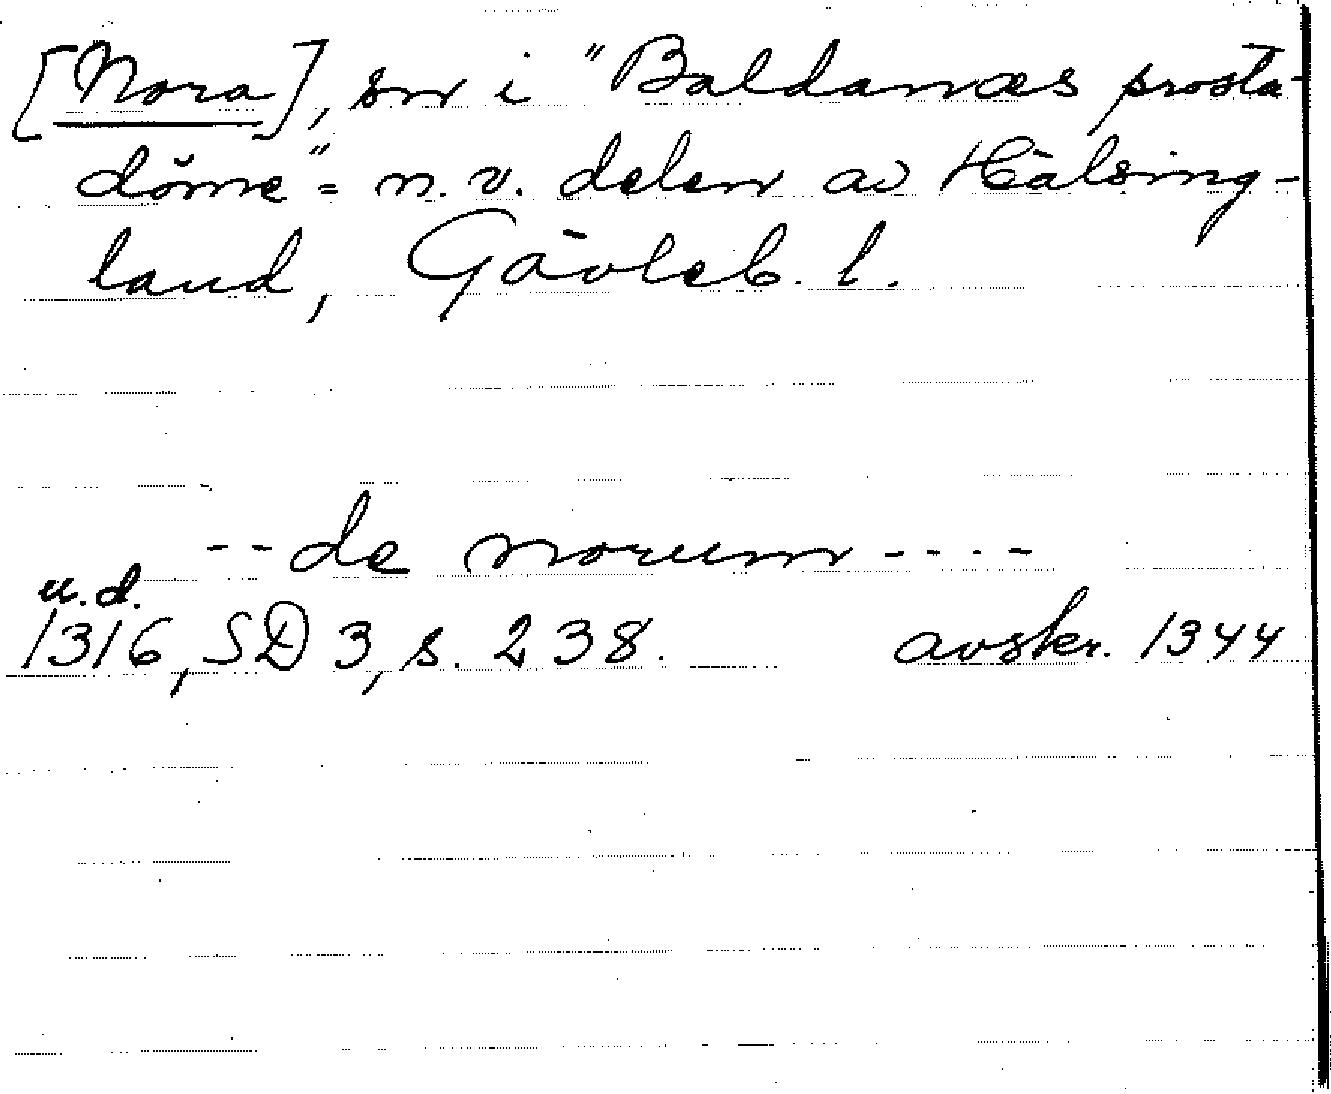 [Nora], sn i "Baldanæs prosta-
döme" = n.v. delen av Hälsing-
land, Gävleb. l.
-- de norum ----
u.d.
1316, SD 3, s. 238. avskr. 1344